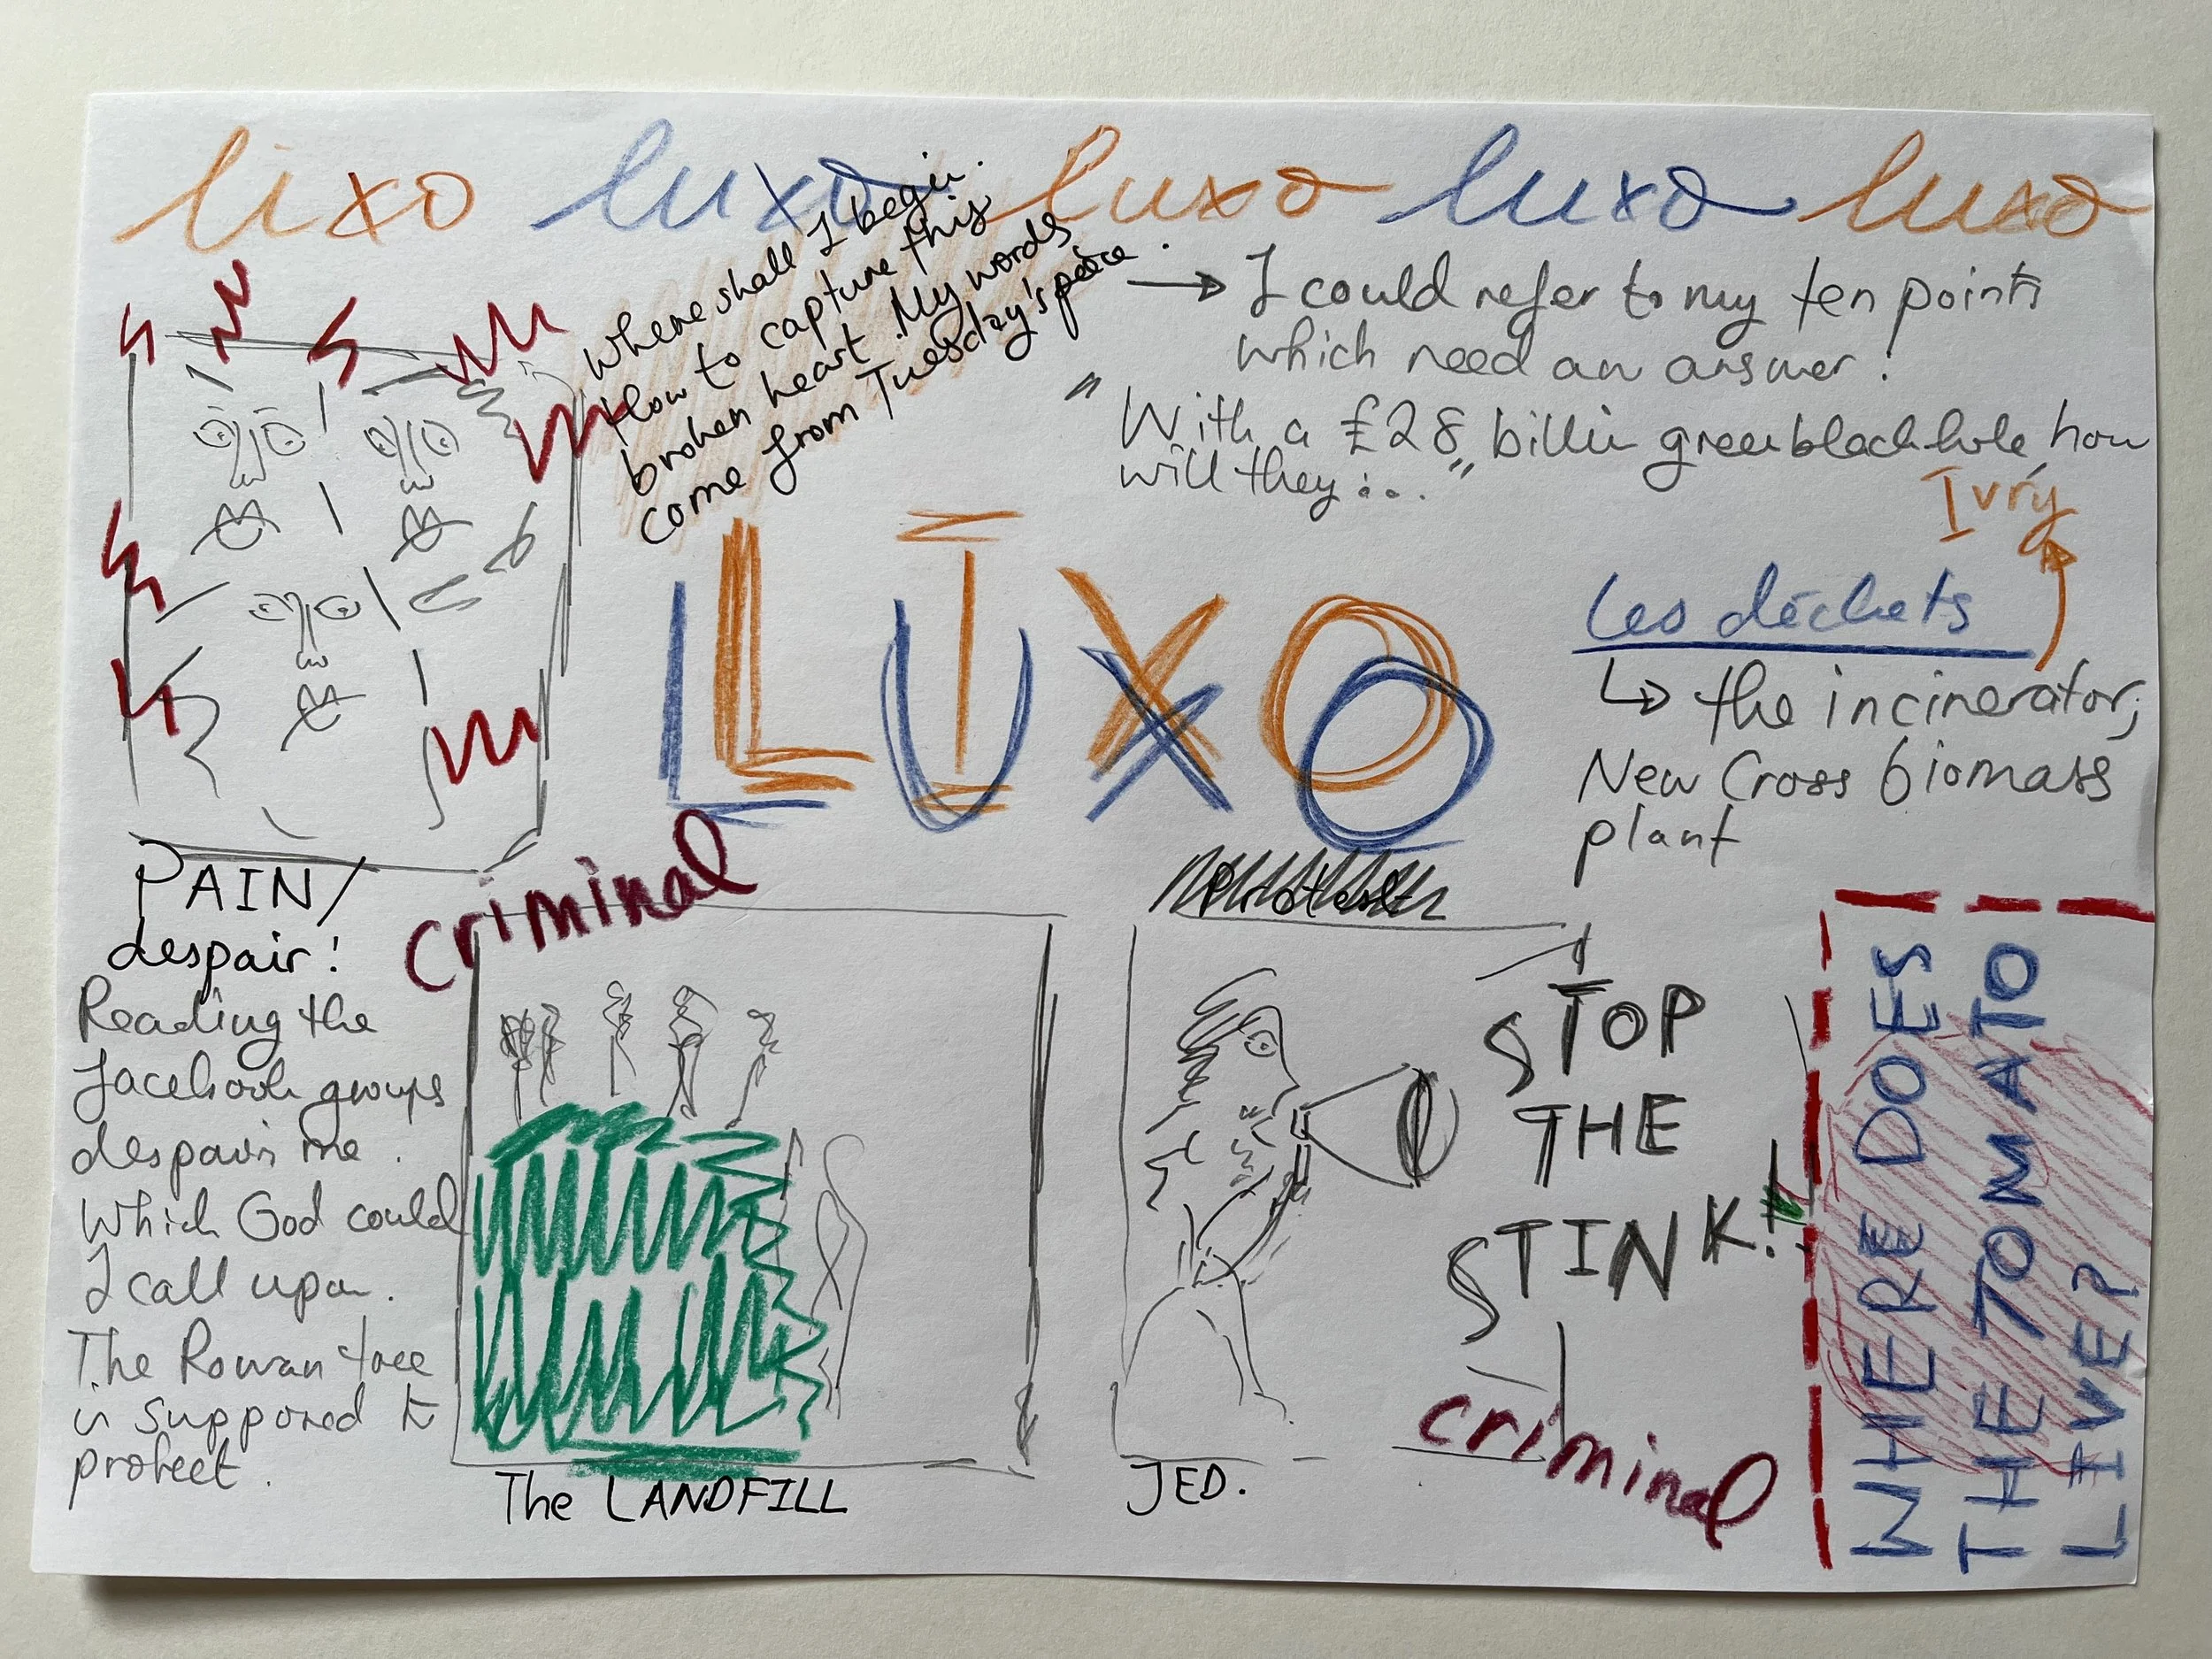 lixo luxo luxo luxo luxo
Where shall I begin.
How to capture this
broken heart. My words
come from Tuesday's
→ I could refer to my ten points
which need an answer!
"With a £28 billion green black hole, how
will they..."
LIXO
LUXO
Ivry
Les déchets
↳ the incinerator;
New Cross biomass
plant
PAIN/
despair!
Reading the
facebook groups
despairs me.
Which God could
I call upon.
The Rowan tree
is supposed to
protect.
criminal
The LANDFILL
STOP
THE
STINK!
JED.
criminal
WHERE DOES
THE TOMATO
LIVE?